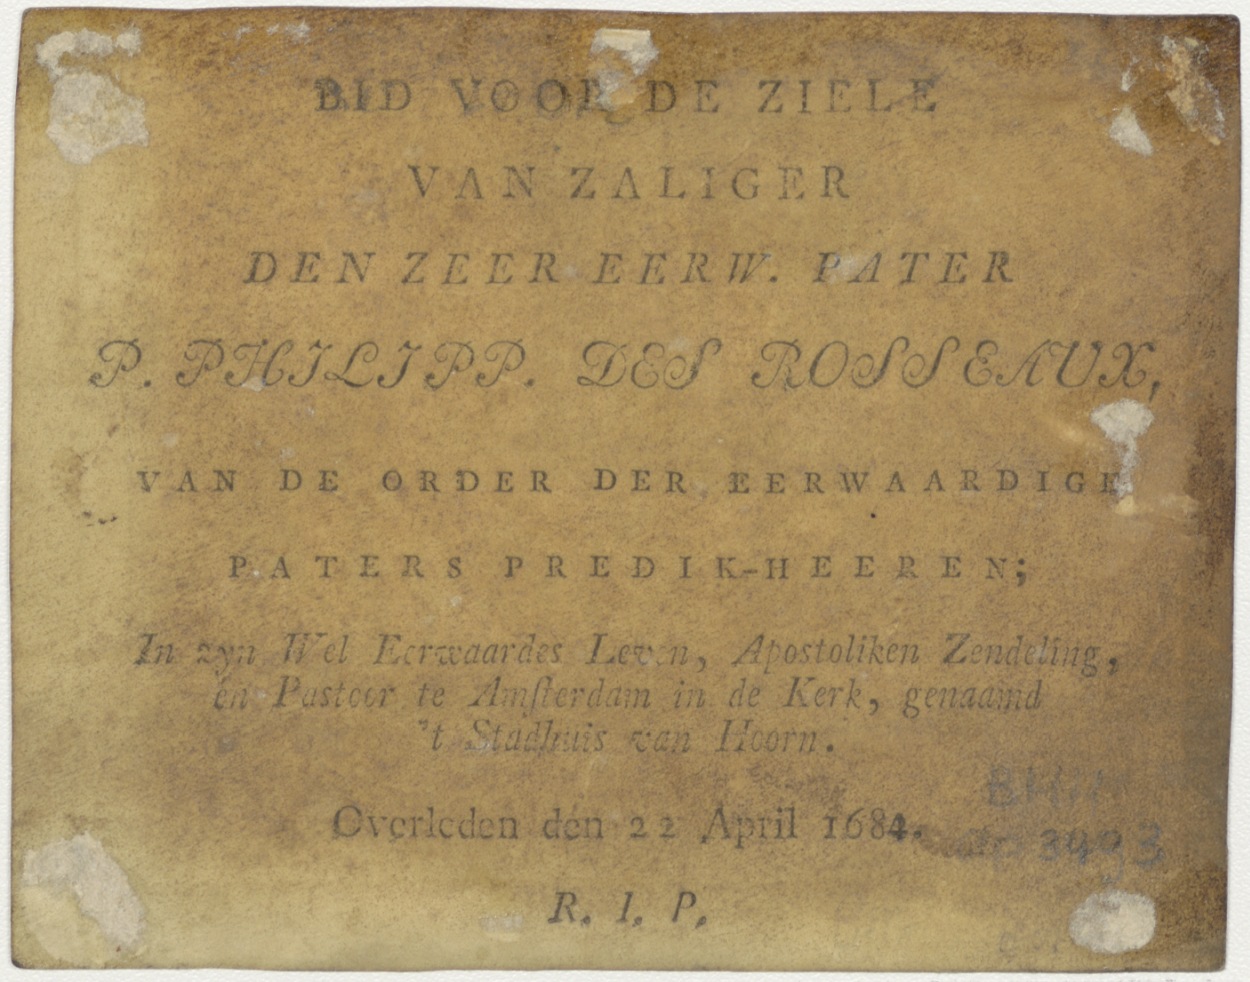 BID VOOR DE ZIELE
VAN ZALIGER
DEN ZEER EERW. PATER
P. PHILIPP. DES ROSSEAUX,
VAN DE ORDER DER EERWAARDIGE
PATERS PREDIK-HEEREN;
In zyn Wel Eerwaardes Leven, Apostoliken Zendeling,
én Pastoor te Amſterdam in de Kerk, genaamd
't Stadhuis van Hoorn.
Overleden dén 22 April 1684.
R. I. P.
3493